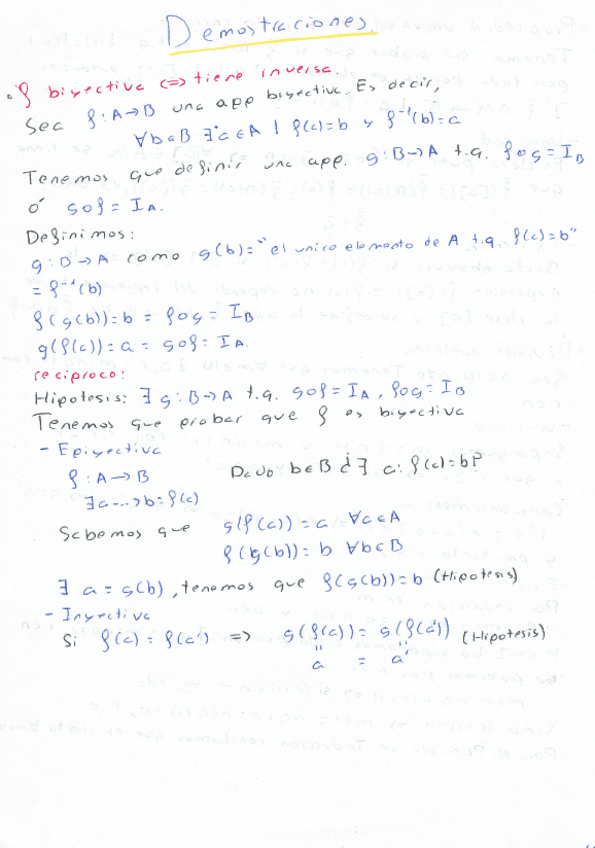 Demostraciones.
• f biyectiva <=> tiene inversa.
Sea f: A→B una app biyectiva. Es decir,
∀b∈B ∃a∈A | f(a)=b y f⁻¹(b)=a
Tenemos que definir una app. g: B→A t.q. fog = I_B
ó gof = I_A.
Definimos:
g: B→A como g(b)="el unico elemento de A t.q. f(a)=b"
= f⁻¹(b)
f(g(b))=b = fog = I_B
g(f(a))=a = gof = I_A.
reciproco:
Hipotesis: ∃ g: B→A t.q. gof = I_A, fog = I_B
Tenemos que probar que f es biyectiva
- Epiyectiva
f: A→B Dado b∈B ¿∃ a: f(a)=b?
∃a...→b=f(a)
Sabemos que g(f(a)) = a ∀a∈A
f(g(b)) = b ∀b∈B
∃ a = g(b), tenemos que f(g(b))=b (Hipotesis)
- Inyectiva
Si f(a) = f(a') => g(f(a)) = g(f(a')) (Hipotesis)
" "
a = a'